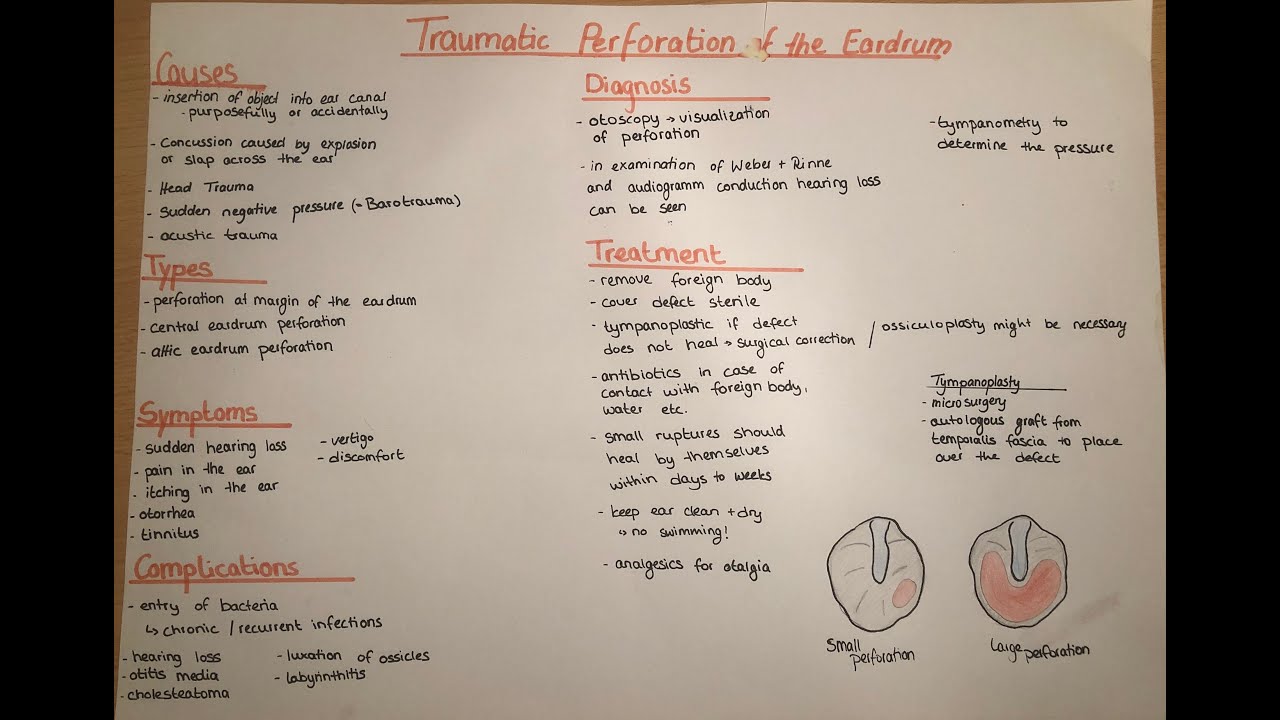 Traumatic Perforation of the Eardrum
Causes
- insertion of object into ear canal
- purposefully or accidentally
- Concussion caused by explosion
or slap across the ear
- Head Trauma
- Sudden negative pressure (= Barotrauma)
- acustic trauma
Types
- perforation at margin of the eardrum
- central eardrum perforation
- attic eardrum perforation
Symptoms
- sudden hearing loss
- pain in the ear
- itching in the ear
- otorrhea
- tinnitus
- vertigo
- discomfort
Complications
- entry of bacteria
↳ chronic / recurrent infections
- hearing loss
- otitis media
- cholesteatoma
- luxation of ossicles
- labyrinthitis
Diagnosis
- otoscopy → visualization
of perforation
- in examination of Weber + Rinne
and audiogramm conduction hearing loss
can be seen
- tympanometry to
determine the pressure
Treatment
- remove foreign body
- cover defect sterile
- tympanoplastic if defect
does not heal → surgical correction / ossiculoplasty might be necessary
- antibiotics in case of
contact with foreign body,
water etc.
- small ruptures should
heal by themselves
within days to weeks
- keep ear clean + dry
↳ no swimming!
- analgesics for otalgia
Tympanoplasty
- microsurgery
- autologous graft from
temporalis fascia to place
over the defect
Small
perforation
Large perforation